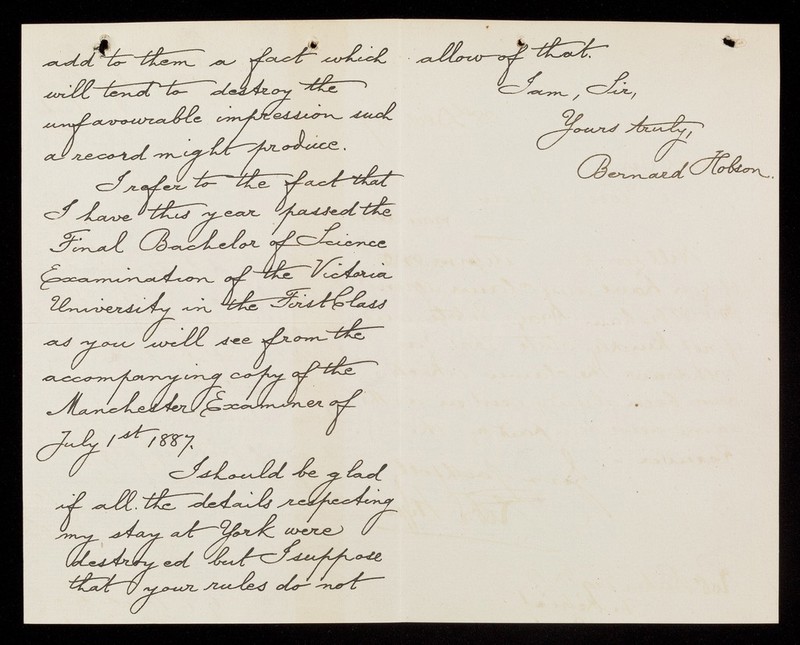 add to them a fact which
will tend to destroy the
unfavourable impression such
a record might produce.
I refer to the fact that
I have this year passed the
Final Bachelor of Science
Examination of the Victoria
University in the First Class
as you will see from the
accompanying copy of the
Manchester Examiner of
July 1st 1887.
I should be glad
if all the details respecting
my stay at York were
destroyed but I suppose
that your rules do not
allow of that.
I am, Sir,
Yours truly,
Bernard Hobson.